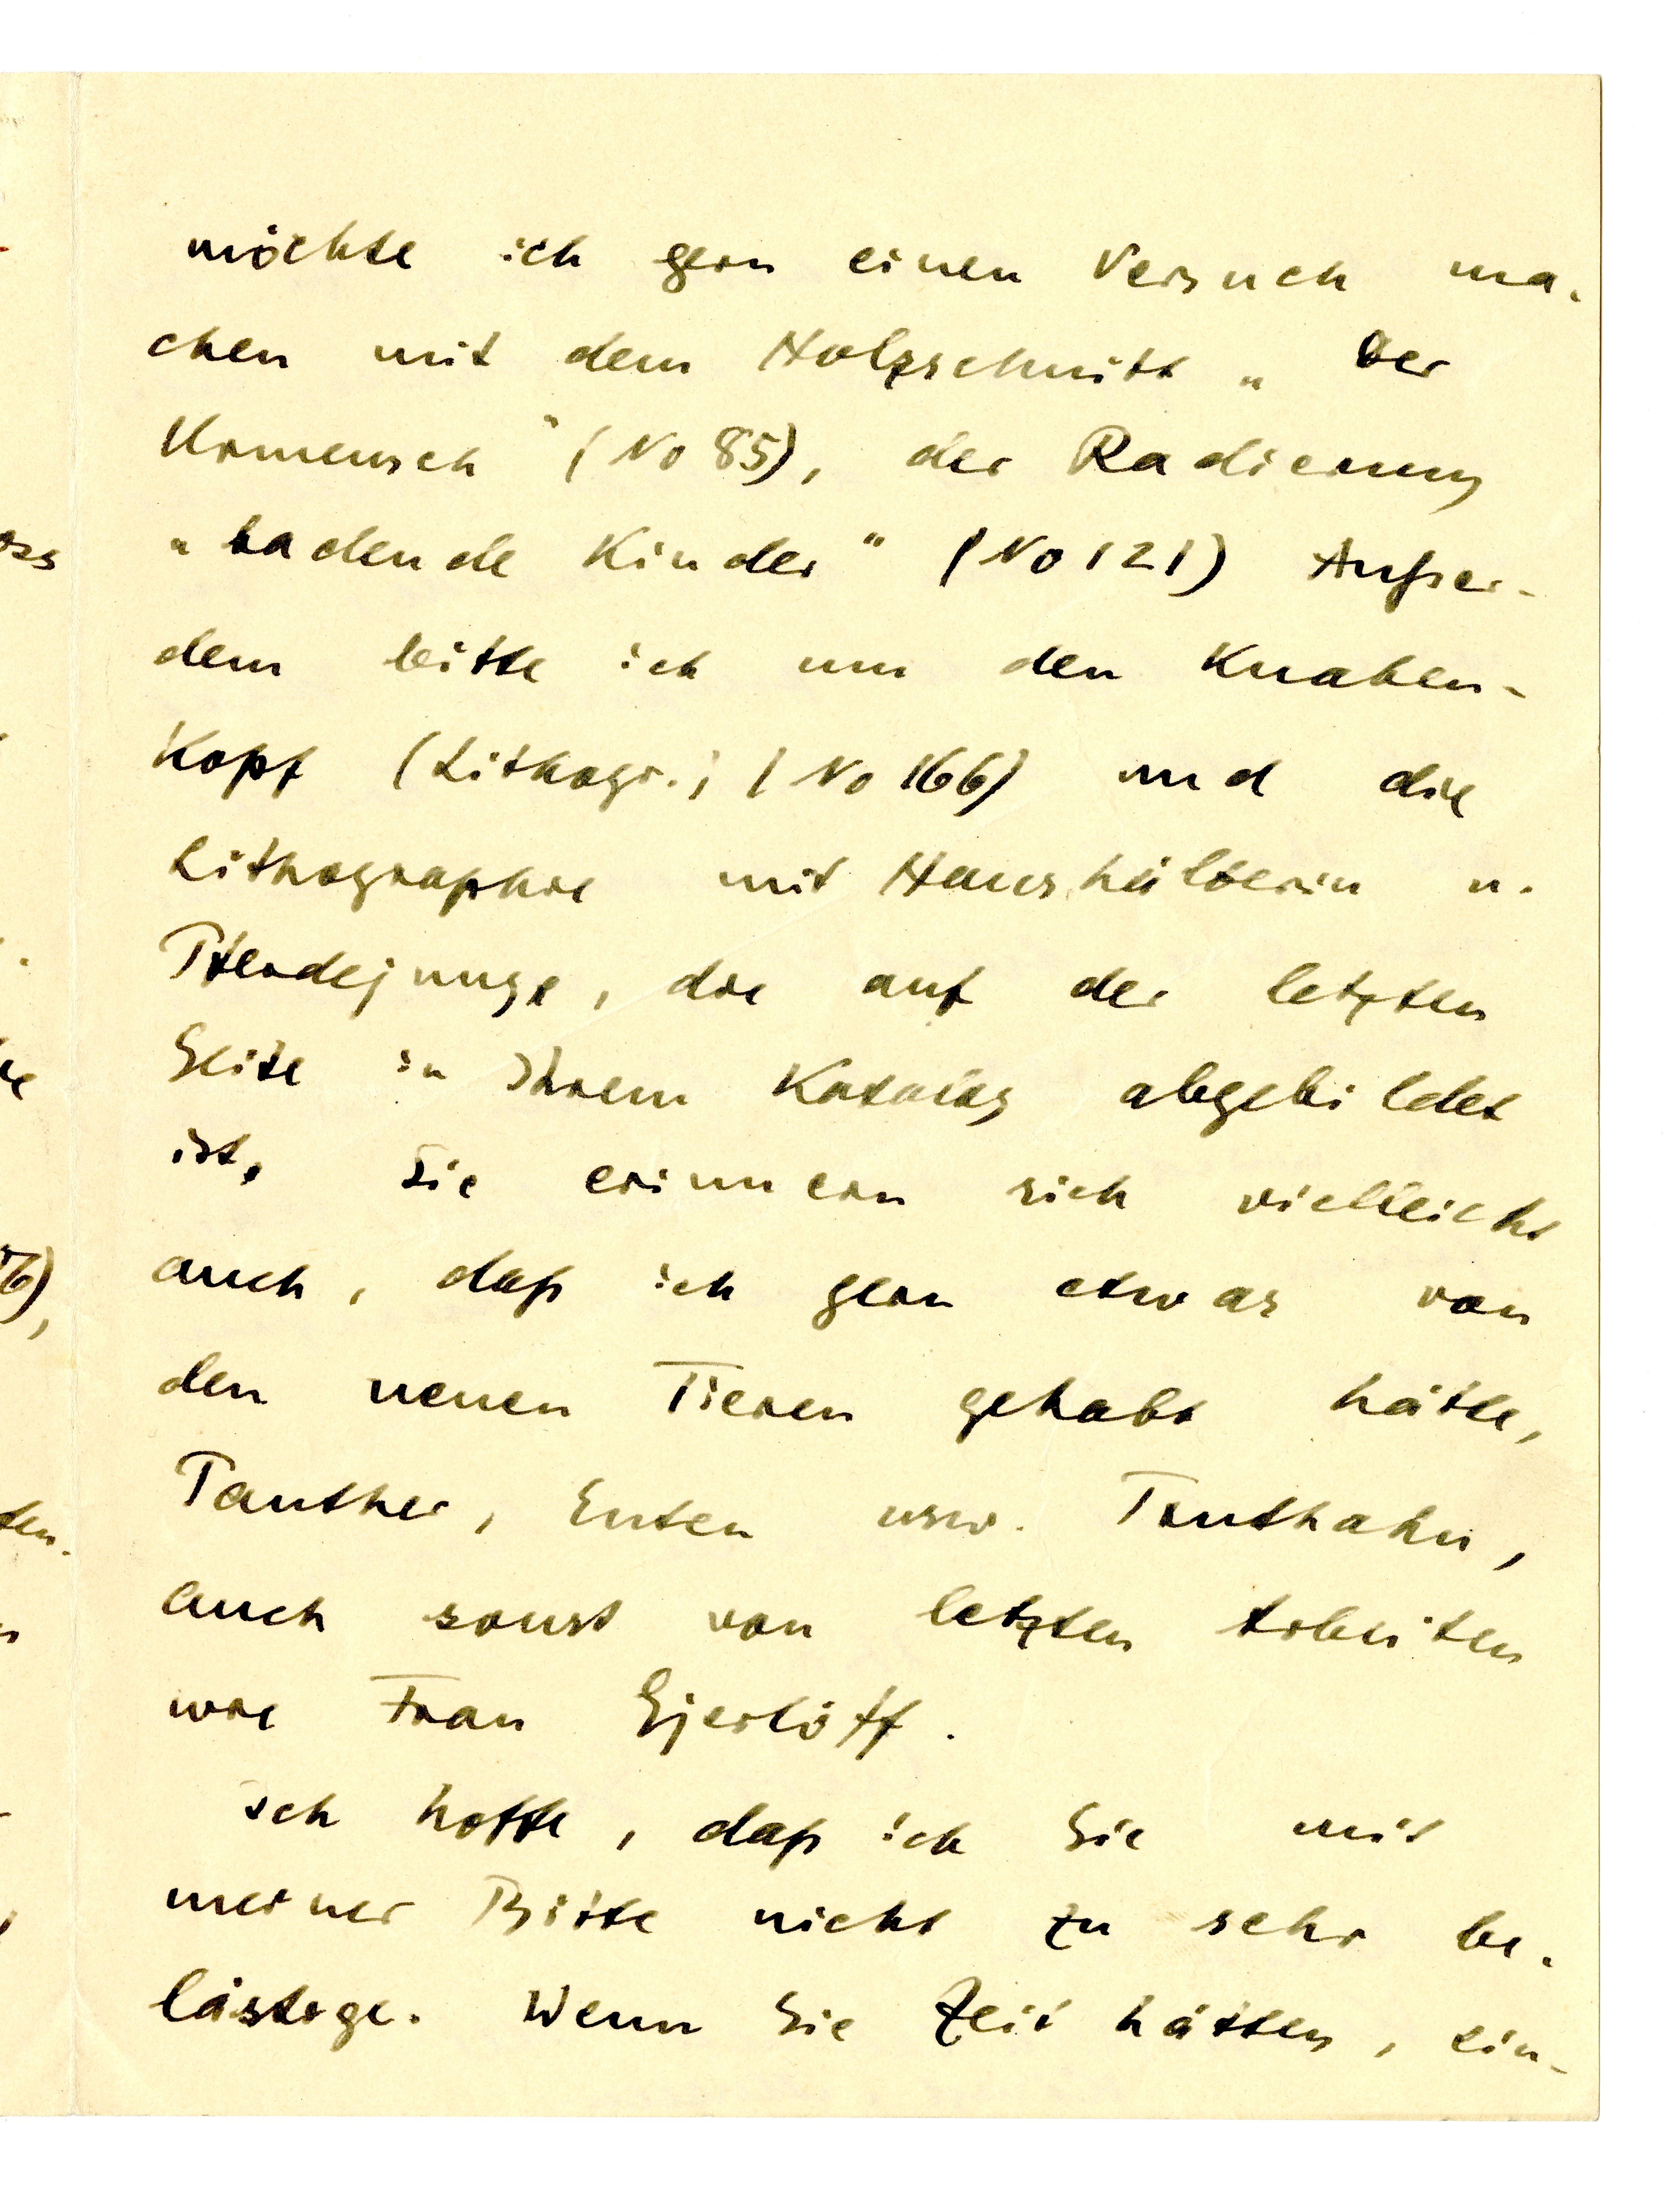 möchte ich gern einen Versuch ma-
chen mit dem Holzschnitt „Der
Urmensch" (No 85), der Radierung
„badende Kinder" (No 121) Außer-
dem bitte ich um den Knaben-
Kopf (Lithogr.) (No 166) und die
Lithographie mit Haushälterin u.
Pferdejunge, die auf der letzten
Seite in Ihrem Katalog abgebildet
ist. Sie erinnern sich vielleicht
auch, daß ich gern etwas von
den neuen Tieren gehabt hätte,
Panther, Enten usw. Truthahn,
auch sonst von letzten Arbeiten
wie Frau Gjerlöff.
Ich hoffe, daß ich Sie mit
meiner Bitte nicht zu sehr be-
lästige. Wenn Sie Zeit hätten, ein-